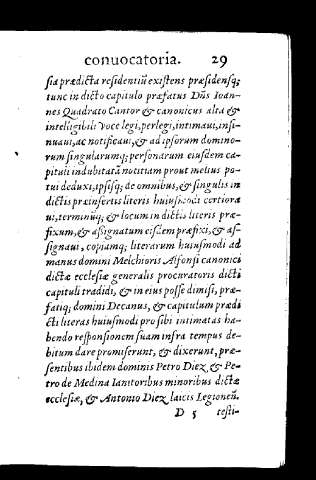 conuocatoria. 29
sia prædicta residentiũ existens præsidensq;
tunc in dicto capitulo præfatus Dñs Ioan-
nes Quadrato Cantor & canonicus alta &
intelligibili voce legi, perlegi, intimaui, insi-
nuaui, ac notificaui, & ad ipsorum domino-
rum singularumq; personarum eiusdem ca-
pituli indubitatã notitiam prout melius po-
tui deduxi, ipsisq; de omnibus, & singulis in
dictis præinsertis literis huiusmodi certiora
ui, terminũq; & locum in dictis literis præ-
fixum, & assignatum eisdem præfixi, & as-
signaui, copiamq; literarum huiusmodi ad
manus domini Melchioris Alfonsi canonici
dictæ ecclesiæ generalis procuratoris dicti
capituli tradidi, & in eius posse dimisi, præ-
fatiq; domini Decanus, & capitulum prædi
cti literas huiusmodi pro sibi intimatas ha-
bendo responsionem suam infra tempus de-
bitum dare promiserunt, & dixerunt, præ-
sentibus ibidem dominis Petro Diez, & Pe-
tro de Medina Ianitoribus minoribus dictæ
ecclesiæ, & Antonio Diez laicis Legioneñ.
D 5 testi-